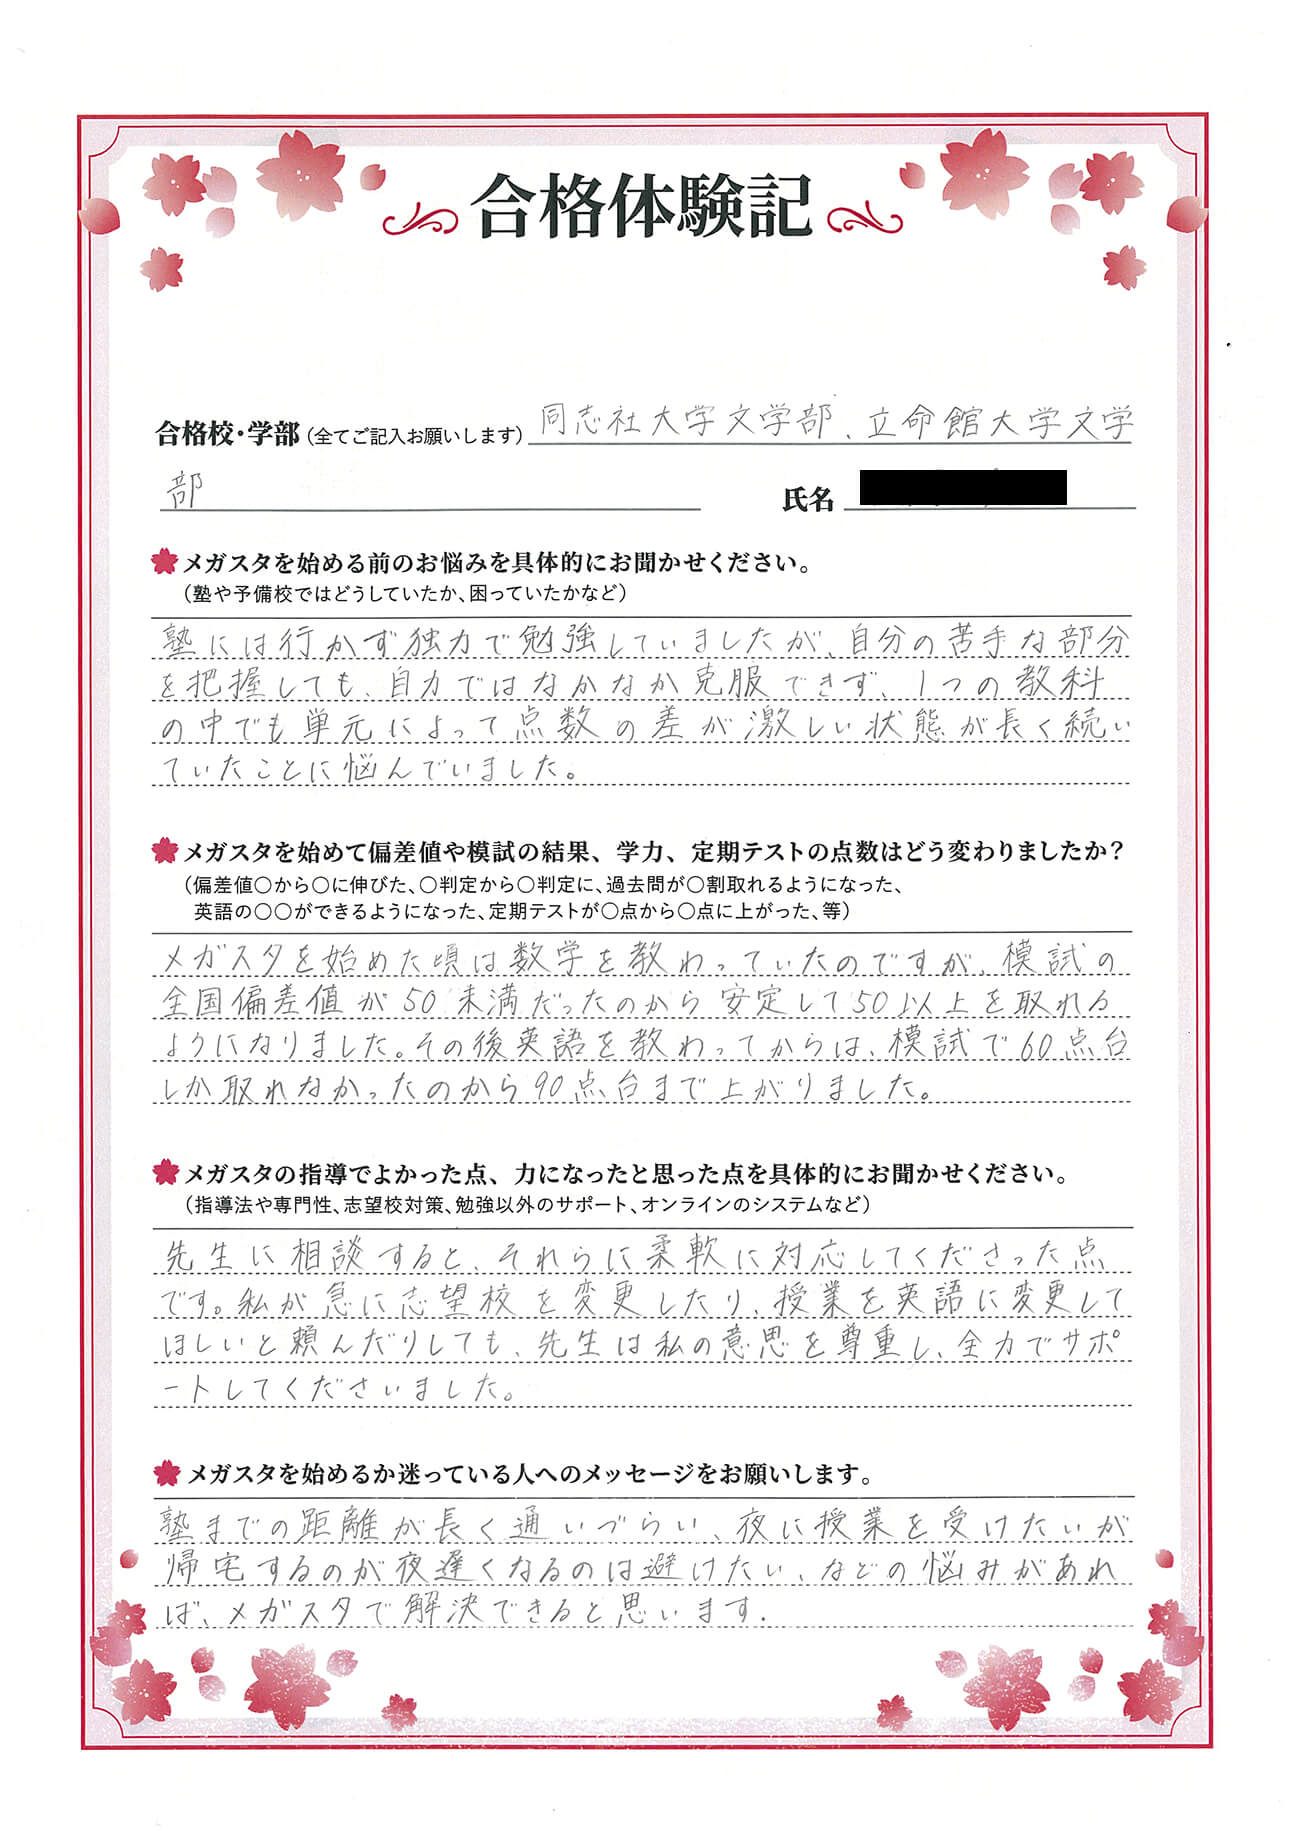 合格体験記
合格校・学部（全てご記入お願いします）同志社大学文学部、立命館大学文学
部
氏名
メガスタを始める前のお悩みを具体的にお聞かせください。
（塾や予備校ではどうしていたか、困っていたかなど）
塾には行かず独力で勉強していましたが、自分の苦手な部分
を把握しても、自力ではなかなか克服できず、1つの教科
の中でも単元によって点数の差が激しい状態が長く続い
ていたことに悩んでいました。
メガスタを始めて偏差値や模試の結果、学力、定期テストの点数はどう変わりましたか？
（偏差値〇から〇に伸びた、〇判定から〇判定に、過去問が〇割取れるようになった、
英語の〇〇ができるようになった、定期テストが〇点から〇点に上がった、等）
メガスタを始めた頃は数学を教わっていたのですが、模試の
全国偏差値が50未満だったのから安定して50以上を取れる
ようになりました。その後英語を教わってからは、模試で60点台
しか取れなかったのから90点台まで上がりました。
メガスタの指導でよかった点、力になったと思った点を具体的にお聞かせください。
（指導法や専門性、志望校対策、勉強以外のサポート、オンラインのシステムなど）
先生に相談すると、それらに柔軟に対応してくださった点
です。私が急に志望校を変更したり、授業を英語に変更して
ほしいと頼んだりしても、先生は私の意思を尊重し、全力でサポ
ートしてくださいました。
メガスタを始めるか迷っている人へのメッセージをお願いします。
塾までの距離が長く通いづらい、夜に授業を受けたいが
帰宅するのが夜遅くなるのは避けたい、などの悩みがあれ
ば、メガスタで解決できると思います.